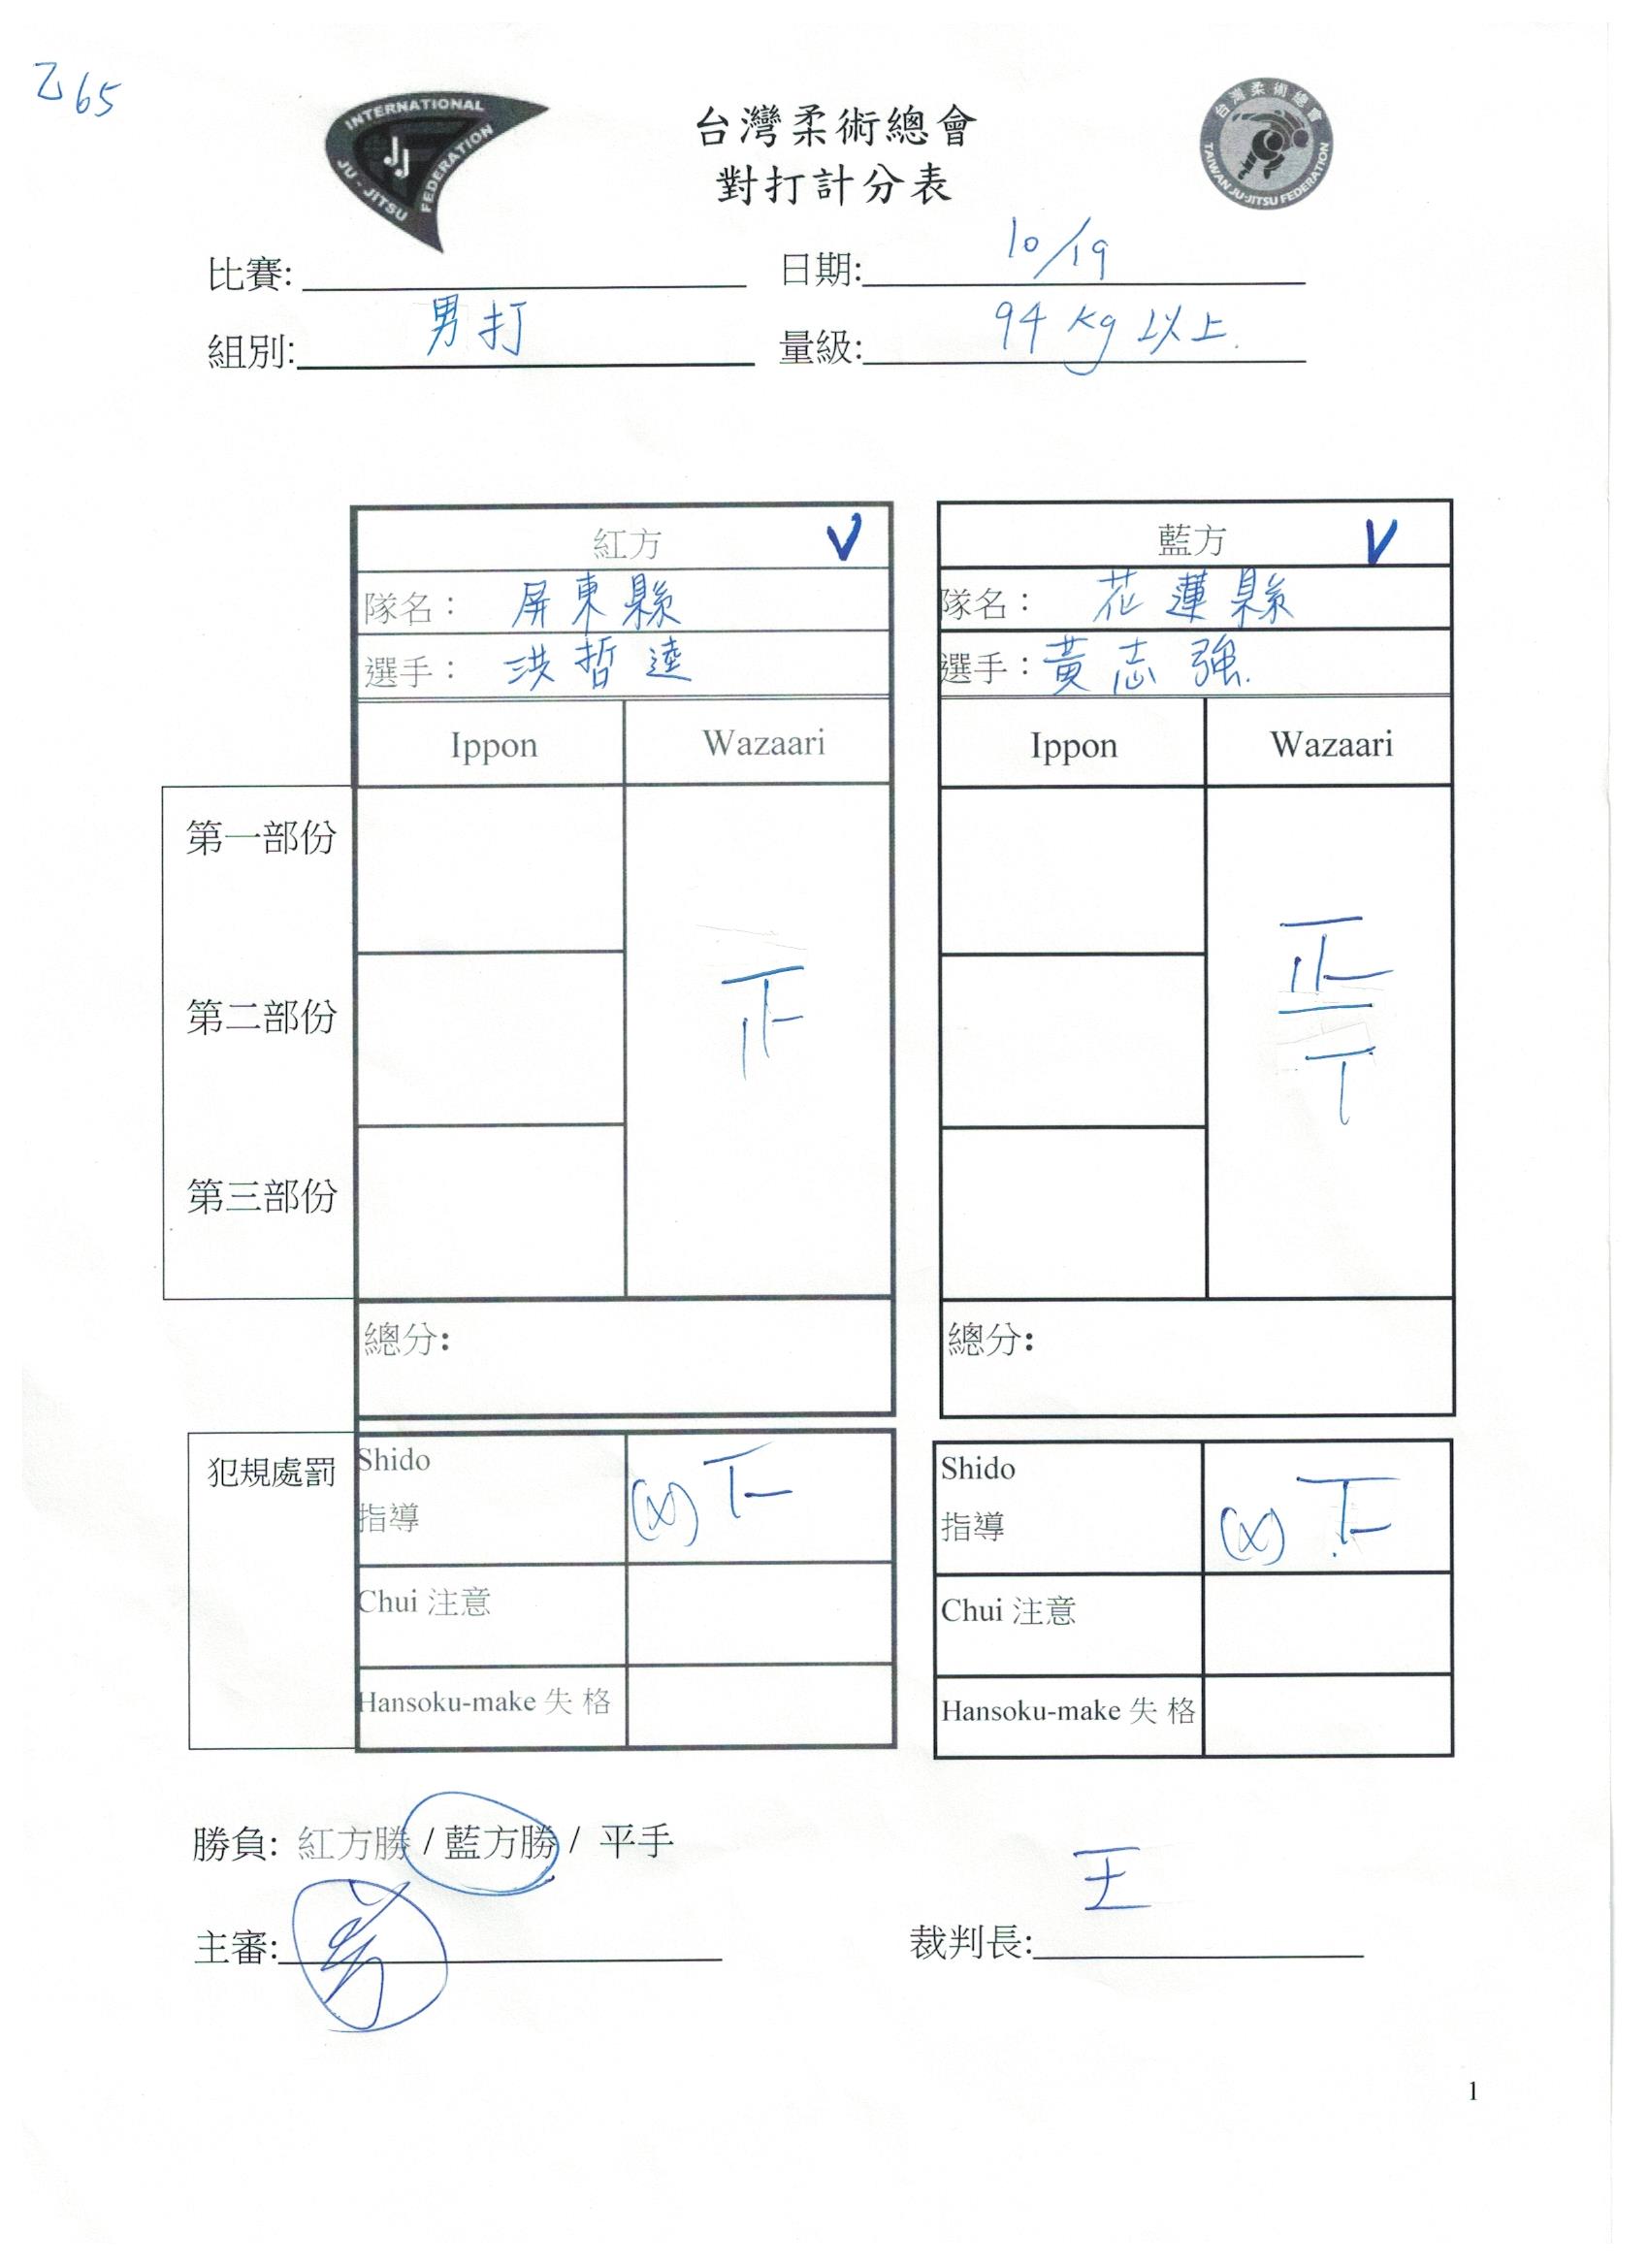 乙65
INTERNATIONAL JU-JITSU FEDERATION
JJ
台灣柔術總會
對打計分表
台灣柔術總會
TAIWAN JU-JITSU FEDERATION
比賽: 日期: 10/19
組別: 男打 量級: 94 kg 以上.
紅方 V 藍方 V
隊名: 屏東縣 隊名: 花蓮縣
選手: 洪哲達 選手: 黃志強.
Ippon Wazaari Ippon Wazaari
第一部份
第二部份
第三部份
正
總分: 總分:
犯規處罰
Shido (x) 下 Shido (x) 下
指導 指導
Chui 注意 Chui 注意
Hansoku-make 失格 Hansoku-make 失格
勝負: 紅方勝 / 藍方勝 / 平手
主審: 裁判長: 王
1